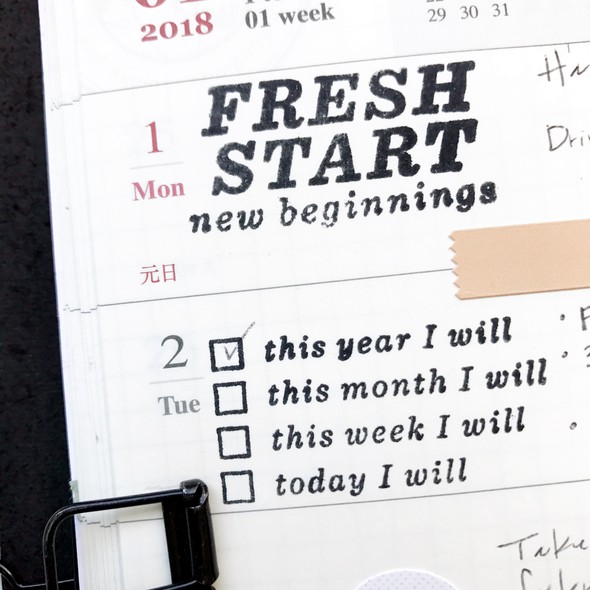 2018
01 week
29 30 31
1
Mon
元日
FRESH
START
new beginnings
2
Tue
this year I will
this month I will
this week I will
today I will
Take